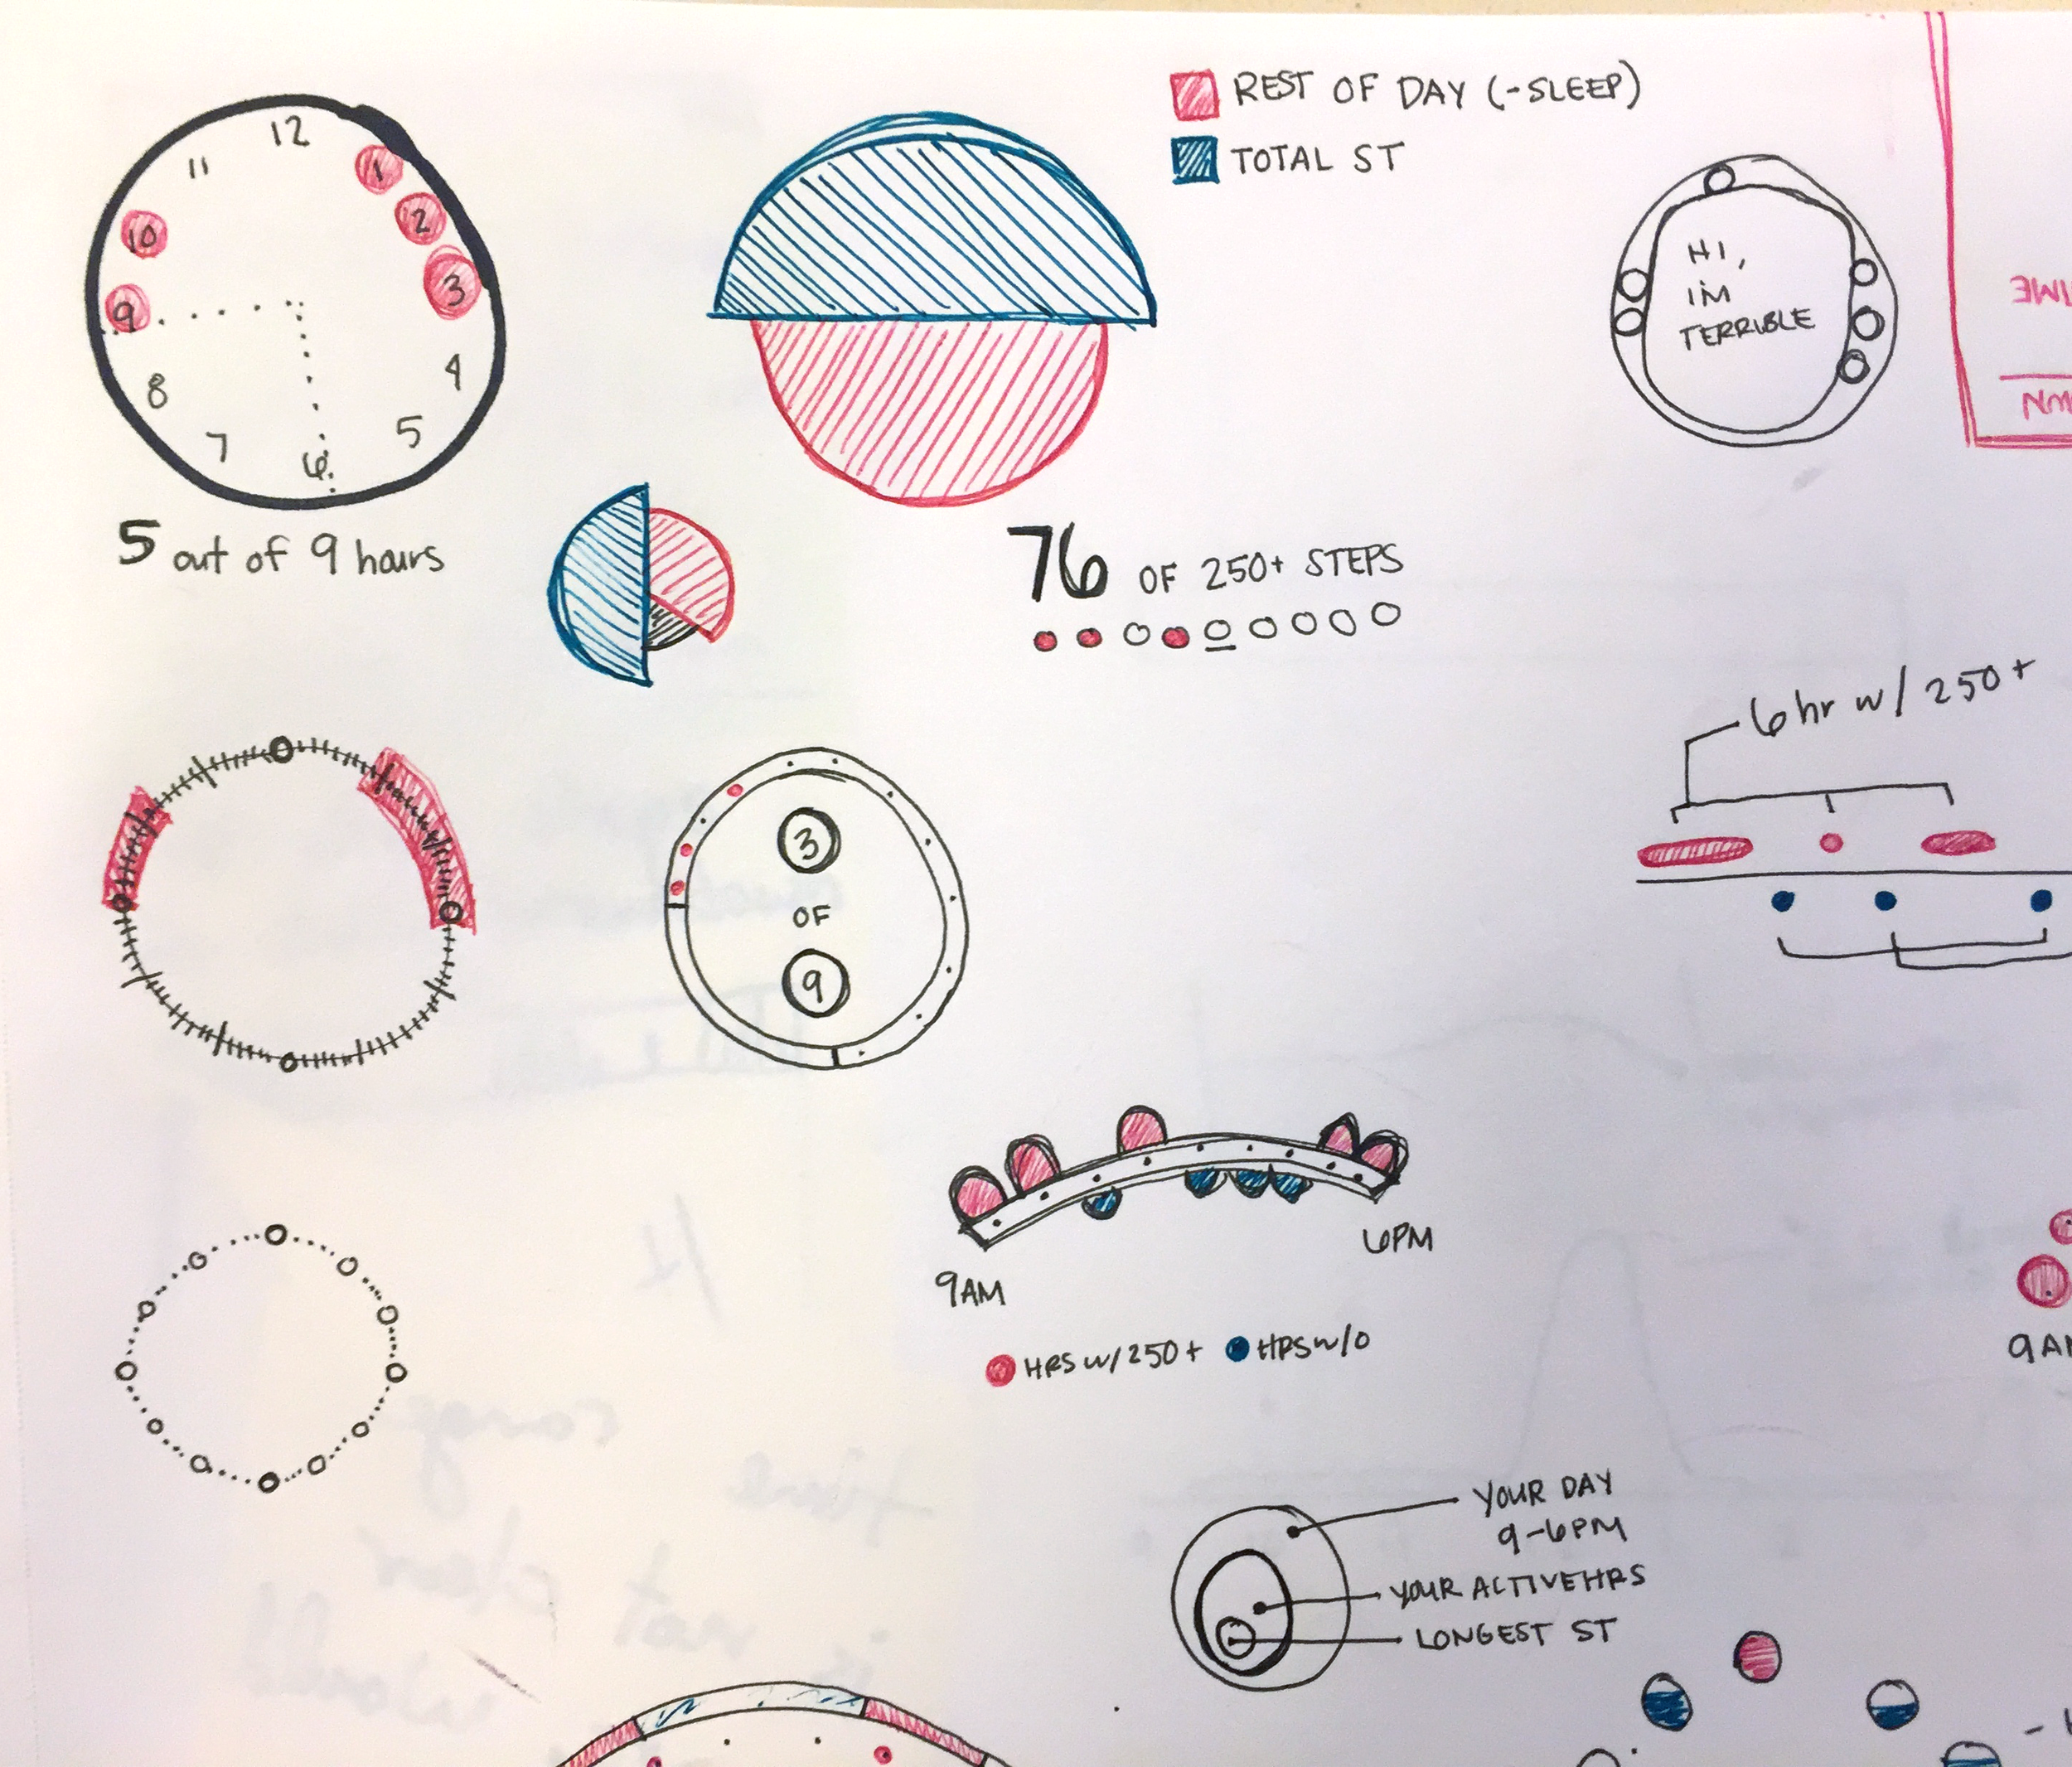 12
11
1
10
2
9
3
8
4
7
5
6
5 out of 9 hours
REST OF DAY (-SLEEP)
TOTAL ST
76 OF 250+ STEPS
HI,
I'M
TERRIBLE
6 hr w/ 250+
3
OF
9
9AM
6PM
HRS w/ 250+ HRS w/0
9AM
YOUR DAY
9-6PM
YOUR ACTIVE HRS
LONGEST ST